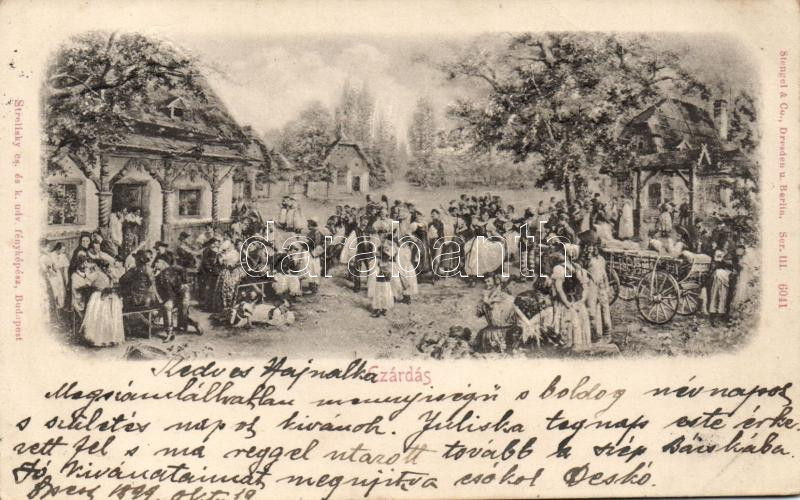 Strelisky cs. és k. udv. fényképész, Budapest
Stengel & Co., Dresden u. Berlin. Ser. III. 6041
darabanth
Czárdás
Kedves Hajnalka
Megszámlálhatlan mennyiségű s boldog névnapot
s születés napot kivánok. Juliska tegnap este érke-
zett fel s ma reggel utazott tovább a szép Bácskába.
Jó kivánataimat megnyitva csókol Deskó
1899. Okt. 19